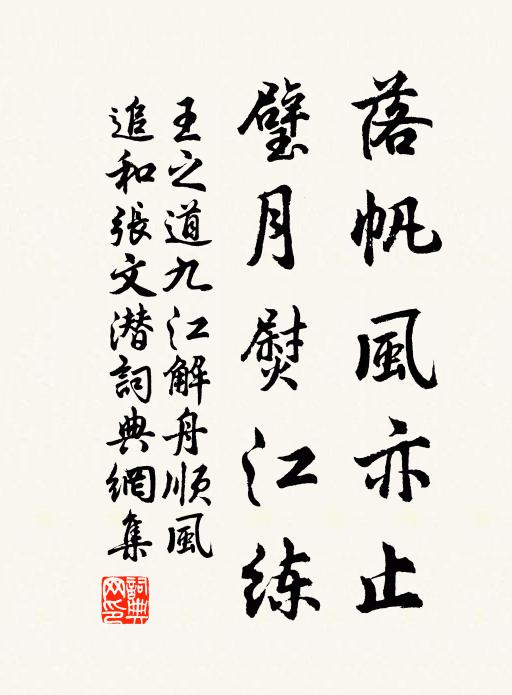 落帆風亦止
璧月熨江练
王之道九江解舟順風
追和張文潜詞典網集
詞典网印